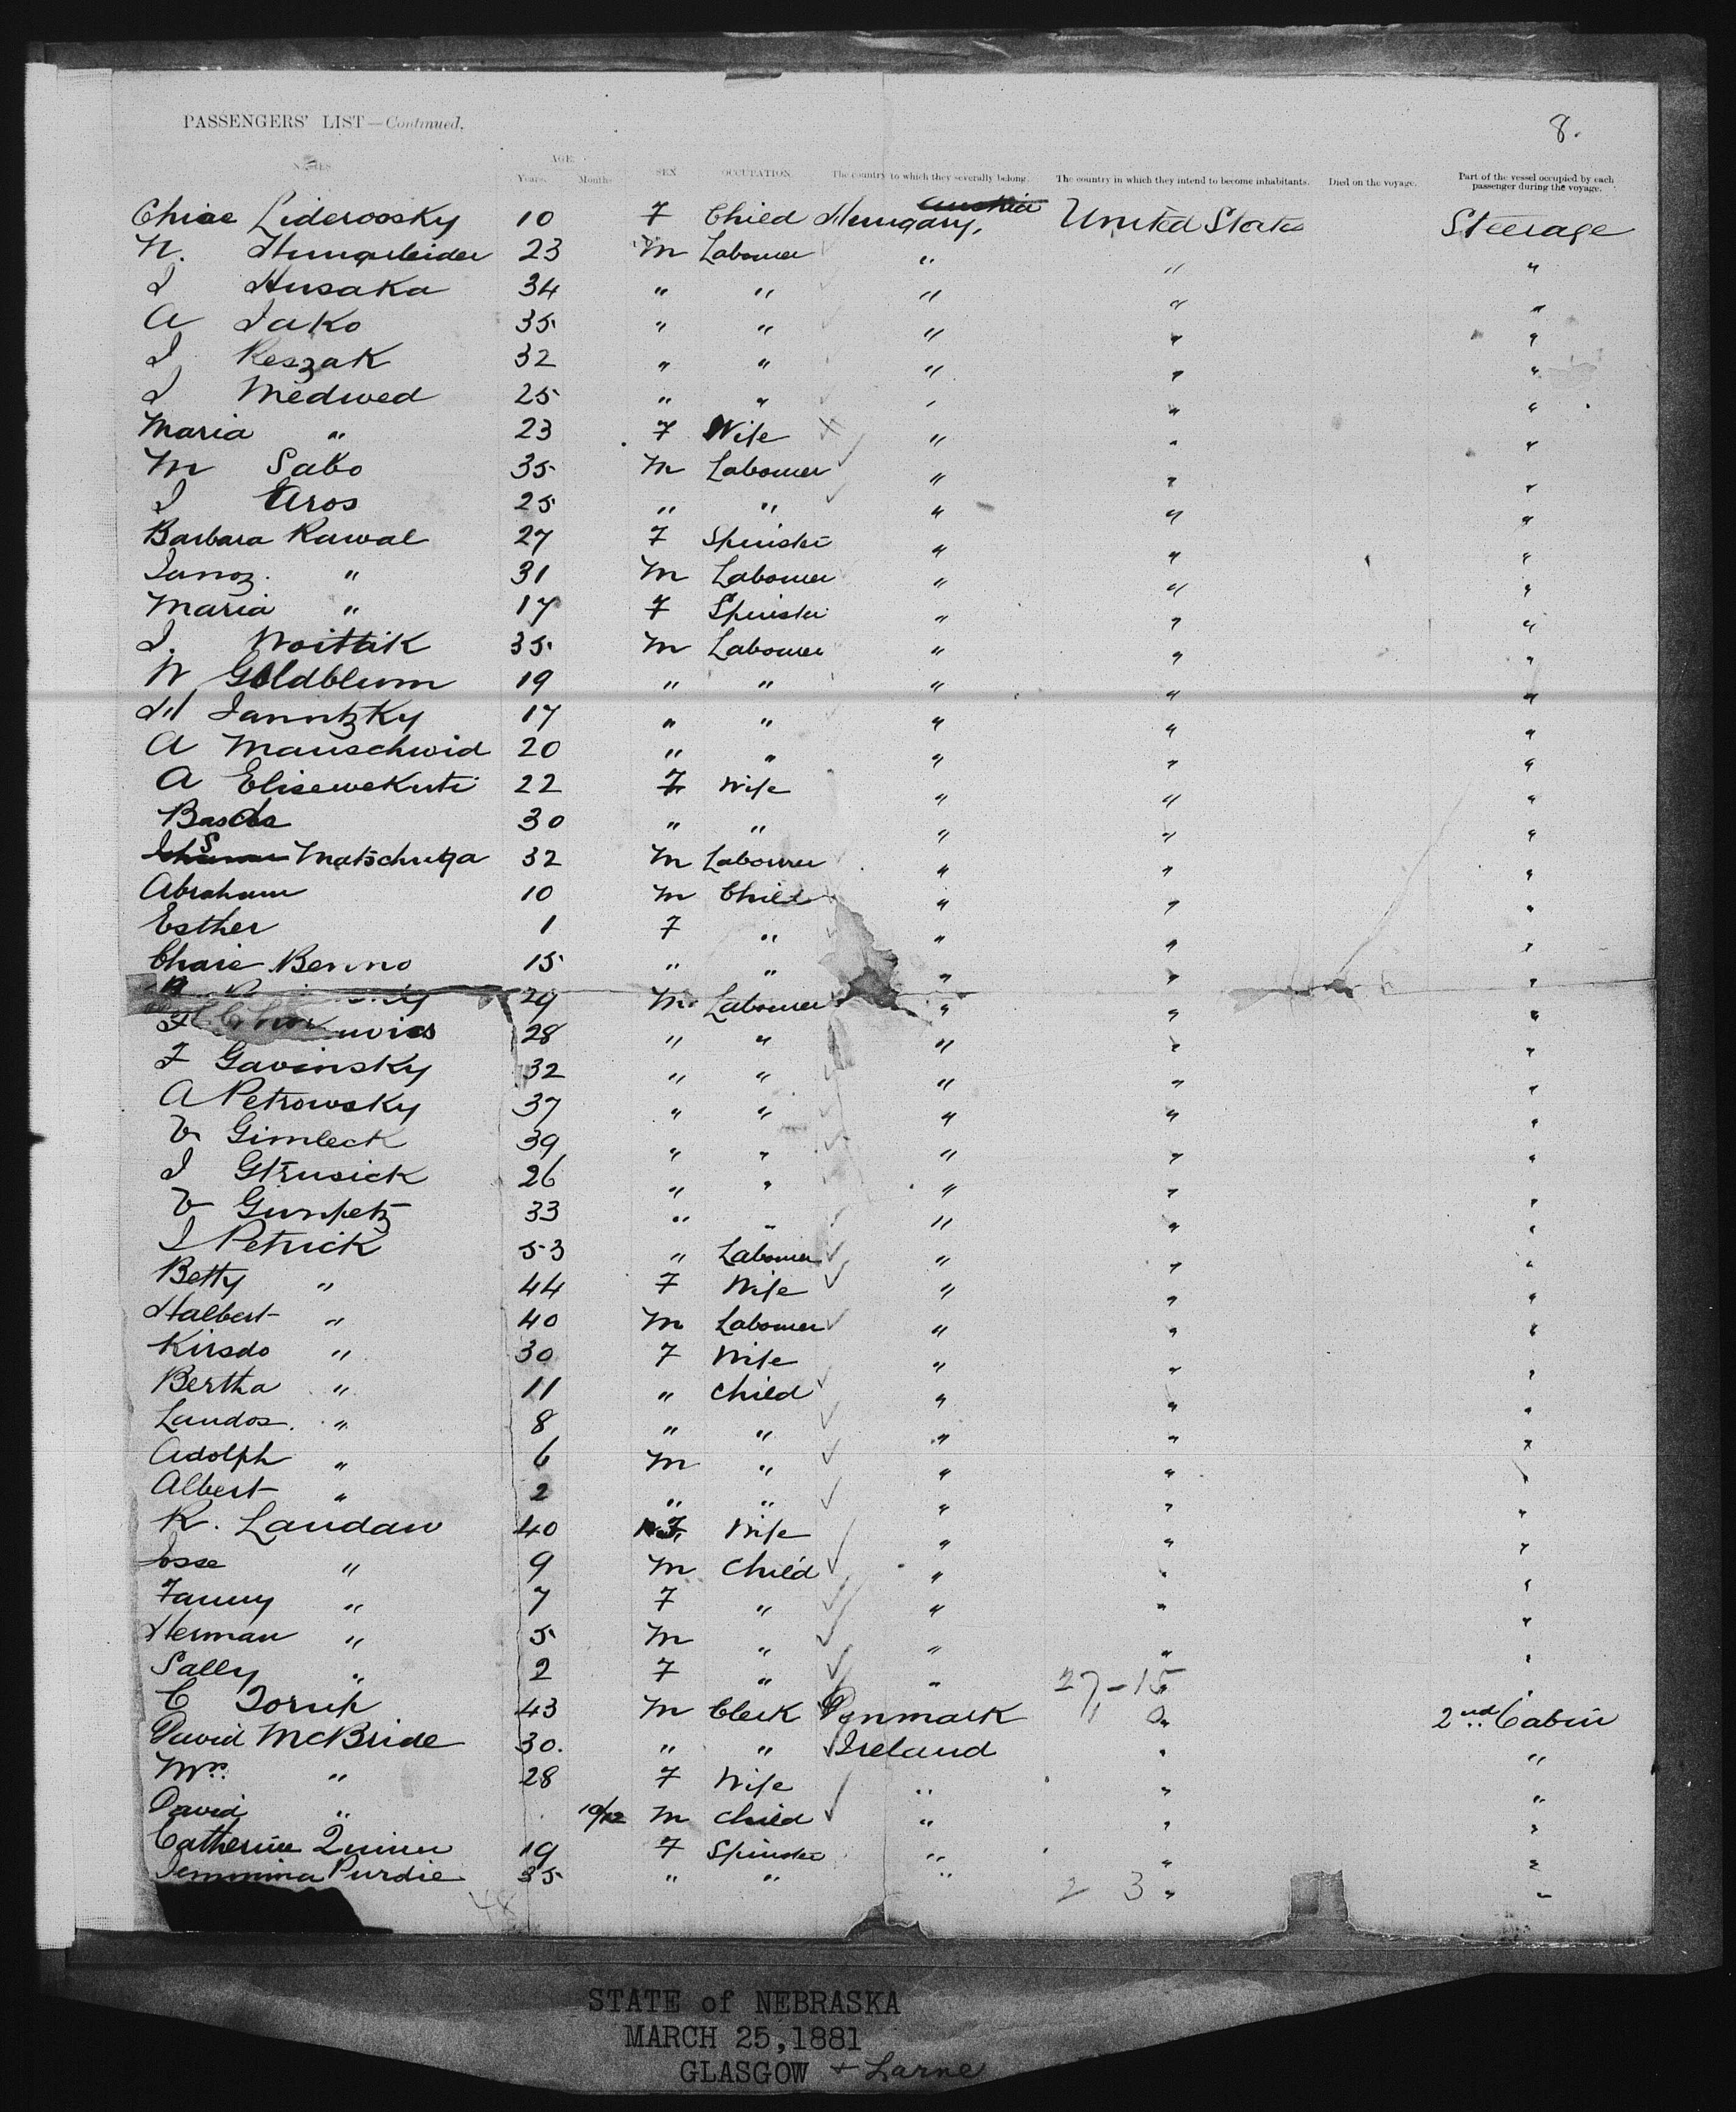 PASSENGERS' LIST—Continued.
8.
NAMES AGE. Years. Months. SEX OCCUPATION. The country to which they severally belong. The country in which they intend to become inhabitants. Died on the voyage. Part of the vessel occupied by each passenger during the voyage.
Chiae Lideroosky 10 F Child Hungary, Austria United States Steerage
N. 23 M Labourer " " "
I Husaka 34 " " " " "
A Jako 35 " " " " "
I Reszak 32 " " " " "
I Medwed 25 " " " " "
Maria " 23 F Wife " " "
M Sabo 35 M Labourer " " "
I Uros 25 " " " " "
Barbara Rawal 27 F Spinster " " "
Janoz. " 31 M Labourer " " "
Maria " 17 F Spinster " " "
I. Woittik 35 M Labourer " " "
N Goldblum 19 " " " " "
M Janntzky 17 " " " " "
A Mauschwid 20 " " " " "
A Elisewekuti 22 F Wife " " "
Bascha 30 " " " " "
S Matschutza 32 M Labourer " " "
Abraham 10 M Child " " "
Esther 1 F " " " "
Chaie Benno 15 " " " " "
29 M Labourer " " "
28 " " " " "
F Gavinsky 32 " " " " "
A Petrowsky 37 " " " " "
V Gimleck 39 " " " " "
I Gtrusick 26 " " " " "
V Gumpetz 33 " " " " "
I Petrick 53 " Labourer " " "
Betty " 44 F Wife " " "
Halbert " 40 M Labourer " " "
Kirsdo " 30 F Wife " " "
Bertha " 11 " Child " " "
Landos. " 8 " " " " "
Adolph " 6 M " " " "
Albert " 2 " " " " "
R. Landau 40 F Wife " " "
Esse " 9 M Child " " "
Fanny " 7 F " " " "
Herman " 5 M " " " "
Sally " 2 F " " " "
27-15
C Torup 43 M Clerk Denmark " 2nd Cabin
David McBride 30. " " Ireland " "
Mrs. " 28 F Wife " " "
David " 10/12 M Child " " "
Catherine Quinn 19 F Spinster " " "
Jemmima Purdie 35 " " " " "
48 2 3
STATE of NEBRASKA
MARCH 25,1881
GLASGOW + Larne